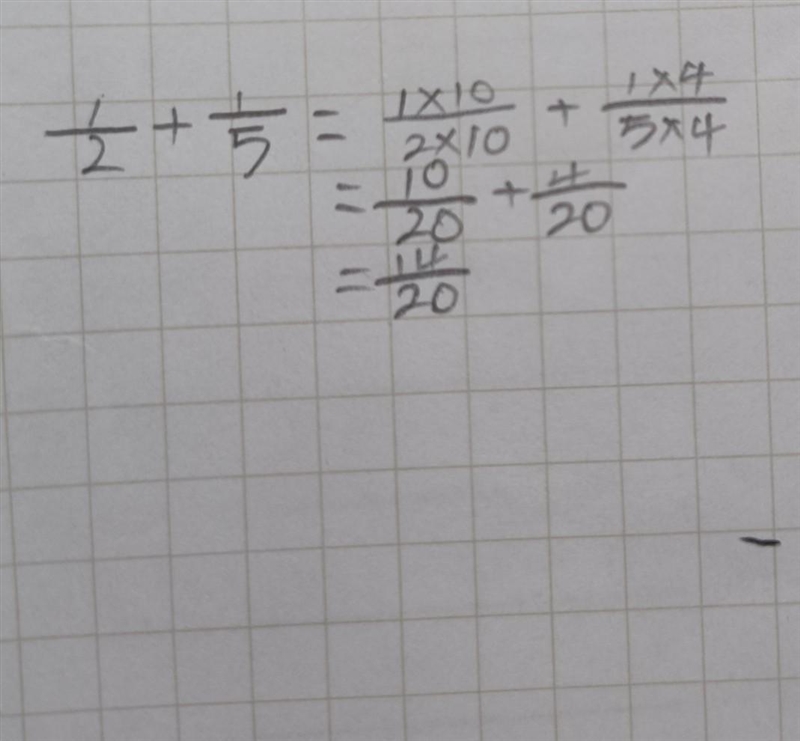 1/2 + 1/5 = (1×10)/(2×10) + (1×4)/(5×4)
= 10/20 + 4/20
= 14/20